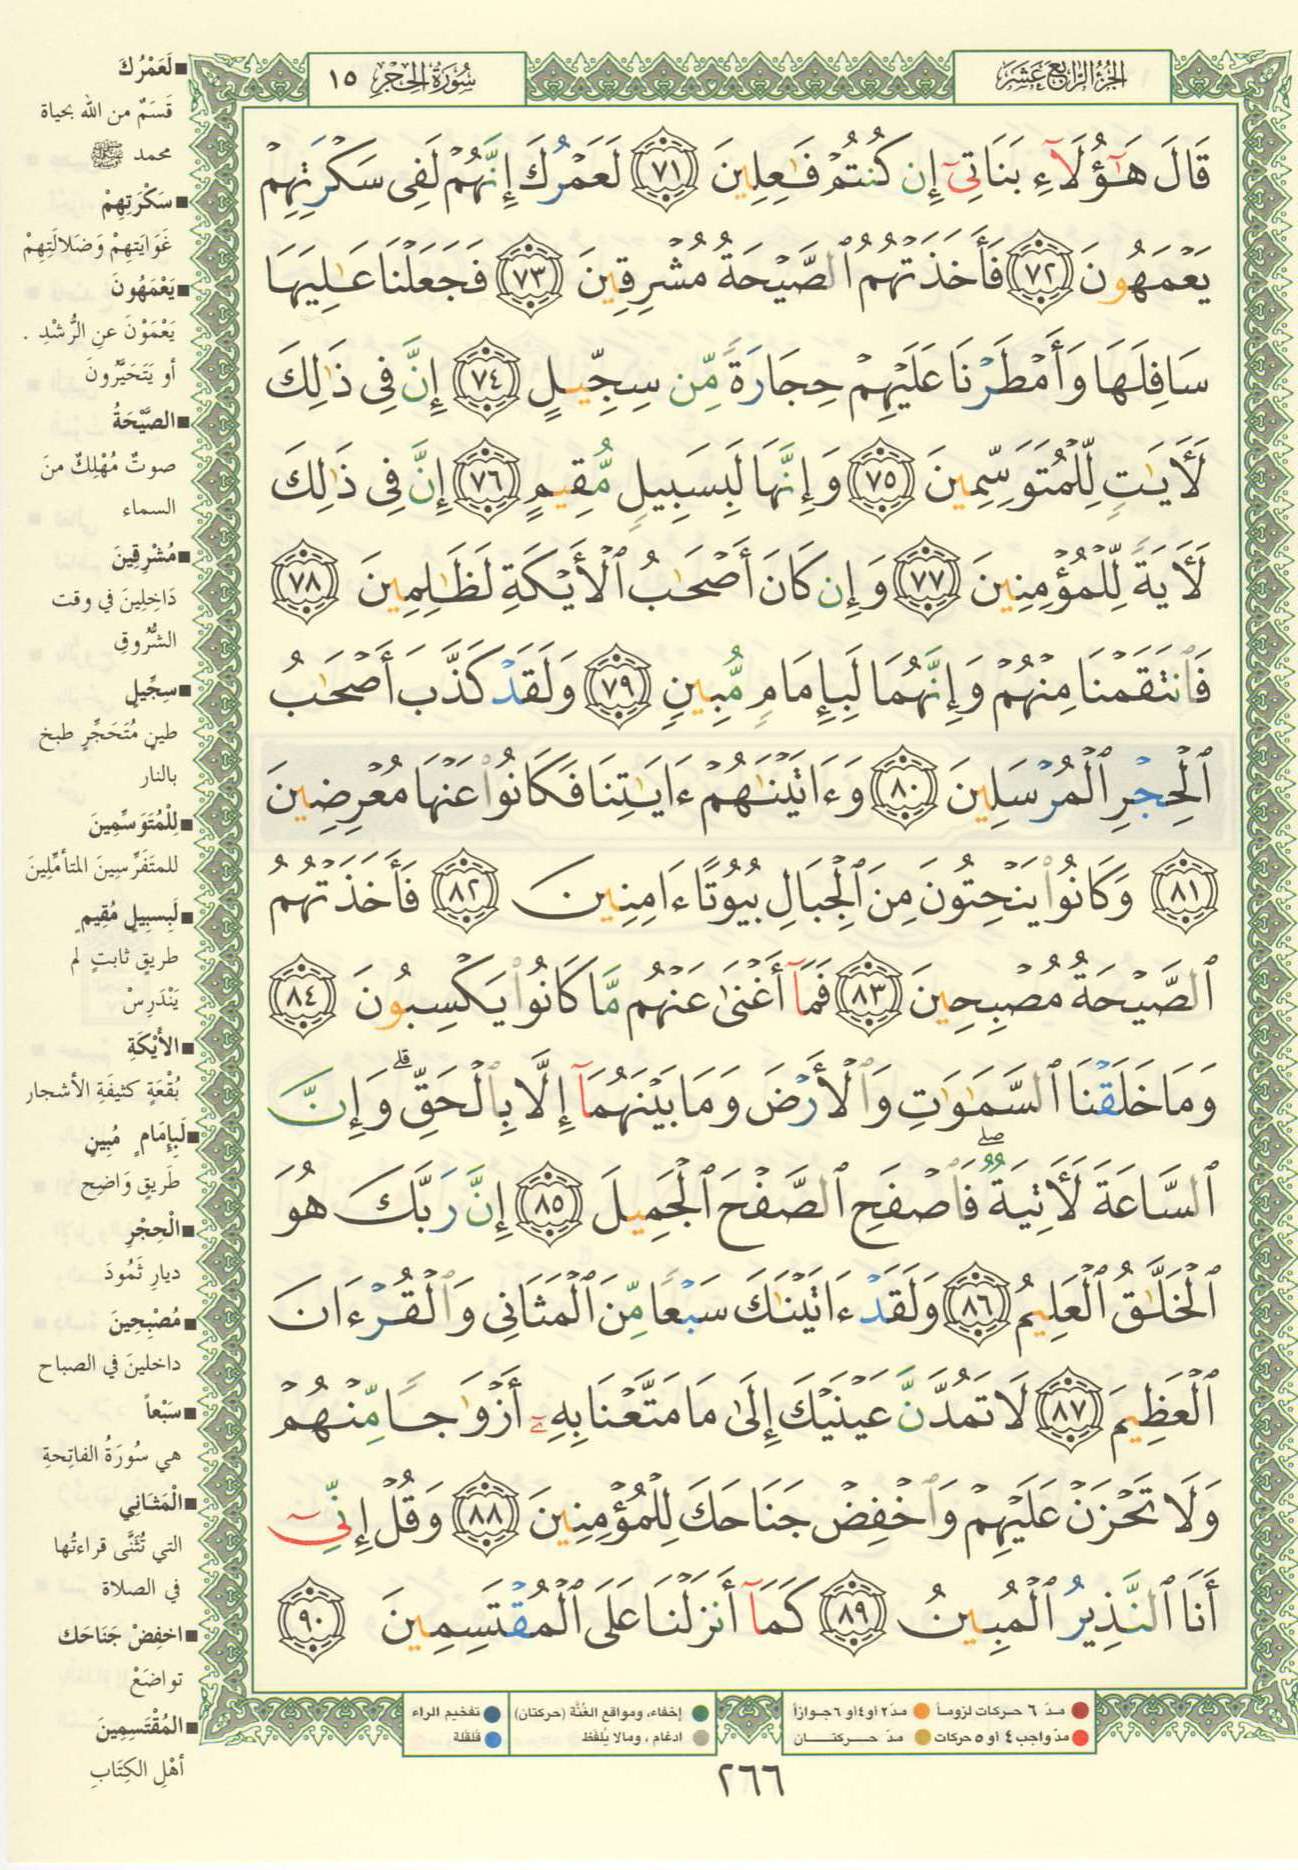 الجزء الرابع عشر
سورة الحجر ١٥
قَالَ هَٰٓؤُلَآءِ بَنَاتِىٓ إِن كُنتُمْ فَٰعِلِينَ ٧١ لَعَمْرُكَ إِنَّهُمْ لَفِى سَكْرَتِهِمْ
يَعْمَهُونَ ٧٢ فَأَخَذَتْهُمُ ٱلصَّيْحَةُ مُشْرِقِينَ ٧٣ فَجَعَلْنَا عَٰلِيَهَا
سَافِلَهَا وَأَمْطَرْنَا عَلَيْهِمْ حِجَارَةً مِّن سِجِّيلٍ ٧٤ إِنَّ فِى ذَٰلِكَ
لَأَيَٰتٍ لِّلْمُتَوَسِّمِينَ ٧٥ وَإِنَّهَا لَبِسَبِيلٍ مُّقِيمٍ ٧٦ إِنَّ فِى ذَٰلِكَ
لَأَيَةً لِّلْمُؤْمِنِينَ ٧٧ وَإِن كَانَ أَصْحَٰبُ ٱلْأَيْكَةِ لَظَٰلِمِينَ ٧٨
فَٱنتَقَمْنَا مِنْهُمْ وَإِنَّهُمَا لَبِإِمَامٍ مُّبِينٍ ٧٩ وَلَقَدْ كَذَّبَ أَصْحَٰبُ
ٱلْحِجْرِ ٱلْمُرْسَلِينَ ٨٠ وَءَاتَيْنَٰهُمْ ءَايَٰتِنَا فَكَانُوا۟ عَنْهَا مُعْرِضِينَ
٨١ وَكَانُوا۟ يَنْحِتُونَ مِنَ ٱلْجِبَالِ بُيُوتًا ءَامِنِينَ ٨٢ فَأَخَذَتْهُمُ
ٱلصَّيْحَةُ مُصْبِحِينَ ٨٣ فَمَآ أَغْنَىٰ عَنْهُم مَّا كَانُوا۟ يَكْسِبُونَ ٨٤
وَمَا خَلَقْنَا ٱلسَّمَٰوَٰتِ وَٱلْأَرْضَ وَمَا بَيْنَهُمَآ إِلَّا بِٱلْحَقِّ ۗ وَإِنَّ
ٱلسَّاعَةَ لَأَتِيَةٌ ۖ فَٱصْفَحِ ٱلصَّفْحَ ٱلْجَمِيلَ ٨٥ إِنَّ رَبَّكَ هُوَ
ٱلْخَلَّٰقُ ٱلْعَلِيمُ ٨٦ وَلَقَدْ ءَاتَيْنَٰكَ سَبْعًا مِّنَ ٱلْمَثَانِى وَٱلْقُرْءَانَ
ٱلْعَظِيمَ ٨٧ لَا تَمُدَّنَّ عَيْنَيْكَ إِلَىٰ مَا مَتَّعْنَا بِهِۦٓ أَزْوَٰجًا مِّنْهُمْ
وَلَا تَحْزَنْ عَلَيْهِمْ وَٱخْفِضْ جَنَاحَكَ لِلْمُؤْمِنِينَ ٨٨ وَقُلْ إِنِّىٓ
أَنَا ٱلنَّذِيرُ ٱلْمُبِينُ ٨٩ كَمَآ أَنزَلْنَا عَلَى ٱلْمُقْتَسِمِينَ ٩٠
■ لَعَمْرُكَ
قَسَمٌ من الله بحياة
محمد ﷺ
■ سَكْرَتِهِمْ
غَوَايَتِهِمْ وَضَلالَتِهِمْ
■ يَعْمَهُونَ
يَعْمَوْنَ عنِ الرُّشْدِ .
أو يَتَحَيَّرُونَ
■ الصَّيْحَةُ
صوتٌ مُهْلِكٌ منَ
السماء
■ مُشْرِقِينَ
دَاخِلِينَ في وقت
الشُّرُوقِ
■ سِجِّيلٍ
طينٍ مُتَحَجِّرٍ طبخ
بالنار
■ لِلْمُتَوَسِّمِينَ
للمتَفَرِّسِينَ المتأمِّلِينَ
■ لَبِسبِيلٍ مُقِيمٍ
طريقٍ ثابتٍ لم
يَنْدَرِسْ
■ الأَيْكَةِ
بُقْعَةٍ كثيفَةِ الأشجار
■ لَبِإِمَامٍ مُبِينٍ
طَريقٍ وَاضِح
■ الْحِجْرِ
ديارِ ثَمُودَ
■ مُصْبِحِينَ
داخلينَ في الصباح
■ سَبْعاً
هي سُورَةُ الفاتِحةِ
■ الْمَثَانِي
التي تُثَنَّى قراءتُها
في الصلاة
■ اخفِضْ جَنَاحَك
تواضَعْ
■ المُقْتَسِمِينَ
أهْلِ الكِتَابِ
مـدّ ٦ حركات لزوماً مدّ ٢ أو ٤ أو ٦ جوازاً
مدّ واجب ٤ أو ٥ حركات مدّ حـــركتـــان
إخفاء، ومواقع الغُنَّة (حركتان)
ادغام ، ومالا يُلفَظ
تفخيم الراء
قلقلة
٢٦٦